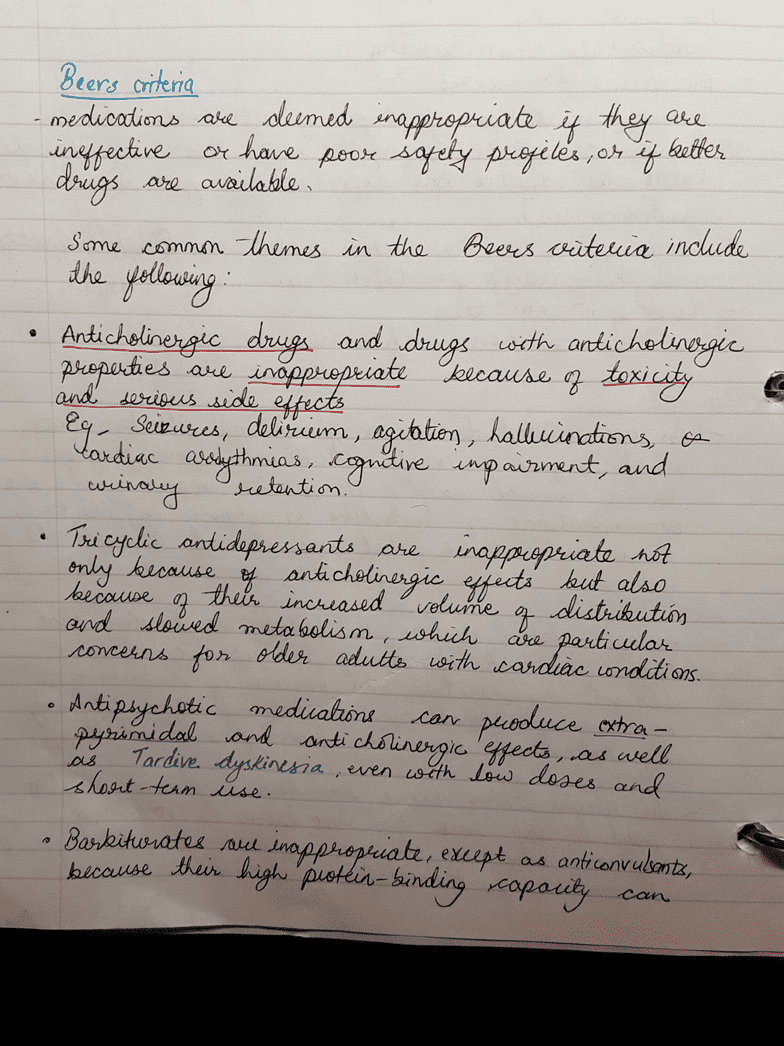 Beers criteria
- medications are deemed inappropriate if they are
ineffective or have poor safety profiles, or if better
drugs are available.
Some common themes in the Beers criteria include
the following:
• Anticholinergic drugs and drugs with anticholinergic
properties are inappropriate because of toxicity
and serious side effects
Eg- Seizures, delirium, agitation, hallucinations,
cardiac arrhythmias, cognitive impairment, and
urinary retention.
• Tricyclic antidepressants are inappropriate not
only because of anticholinergic effects but also
because of their increased volume of distribution
and slowed metabolism, which are particular
concerns for older adults with cardiac conditions.
• Antipsychotic medications can produce extra-
pyrimidal and anticholinergic effects, as well
as Tardive dyskinesia, even with low doses and
short-term use.
• Barbiturates are inappropriate, except as anticonvulsants,
because their high protein-binding capacity can